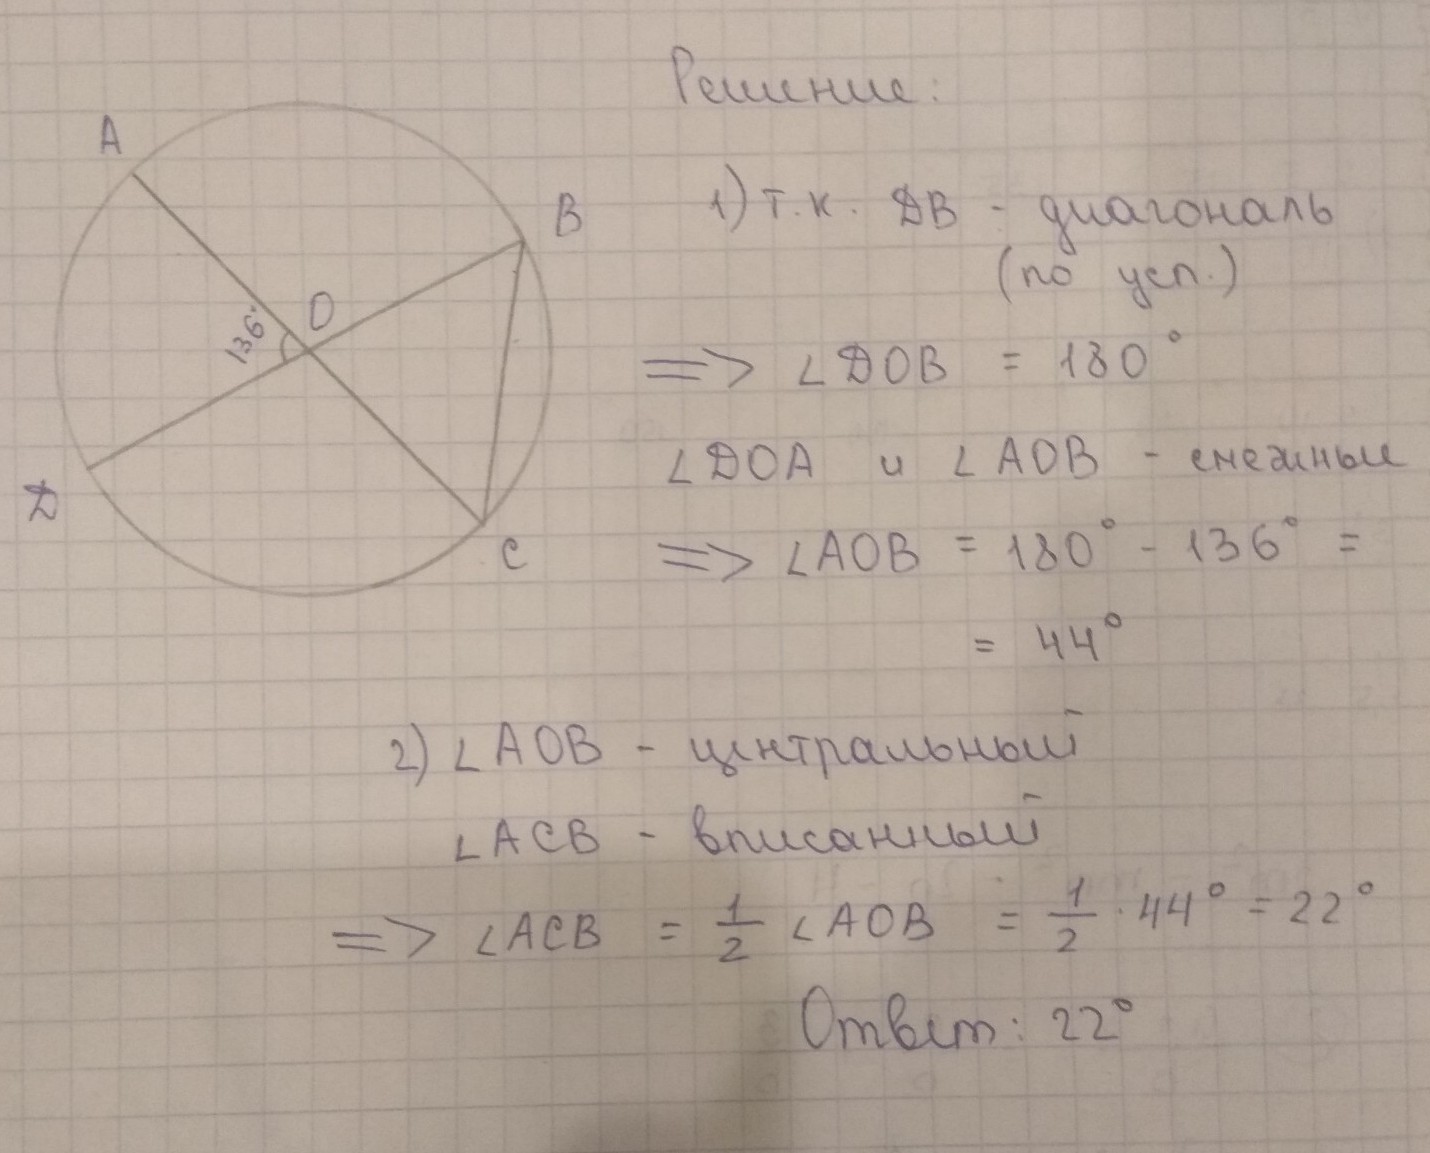 Решение:
A
B
1) т.к. DB - диагональ
(по усл.)
O
136°
=> ∠DOB = 180°
∠DOA и ∠AOB - смежные
D
=> ∠AOB = 180° - 136° =
C
= 44°
2) ∠AOB - центральный
∠ACB - вписанный
=> ∠ACB = 1/2 ∠AOB = 1/2 · 44° = 22°
Ответ: 22°